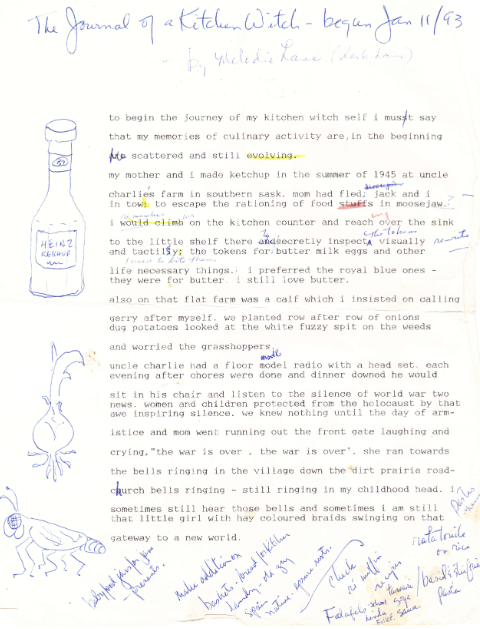 The Journal of a Kitchen Witch - begun Jan 11/93
- by Melodie Lane
to begin the journey of my kitchen witch self i must say
that my memories of culinary activity are, in the beginning
scattered and still evolving.
my mother and i made ketchup in the summer of 1945 at uncle
charlie's farm in southern sask. mom had fled; jack and i
in tow; to escape the rationing of food stuffs in moosejaw.?
i would climb on the kitchen counter and reach over the sink
to the little shelf there and secretly inspect visually
rewrite
and tactilly; the tokens for butter milk eggs and other
life necessary things. i preferred the royal blue ones -
they were for butter. i still love butter.
HEINZ
KETCHUP
57
also on that flat farm was a calf which i insisted on calling
gerry after myself. we planted row after row of onions
dug potatoes looked at the white fuzzy spit on the weeds
and worried the grasshoppers
uncle charlie had a floor model radio with a head set. each
evening after chores were done and dinner downed he would
sit in his chair and listen to the silence of world war two
news. women and children protected from the holocaust by that
awe inspiring silence. we knew nothing until the day of arm-
istice and mom went running out the front gate laughing and
crying,"the war is over . the war is over". she ran towards
the bells ringing in the village down the dirt prairie road-
church bells ringing - still ringing in my childhood head. i
sometimes still hear those bells and sometimes i am still
that little girl with hay coloured braids swinging on that
gateway to a new world.
baskets, bread for kitchen
laundry, old
Spain
check
muffin
recipes
ratatouille
on rice
Falafels
pasta